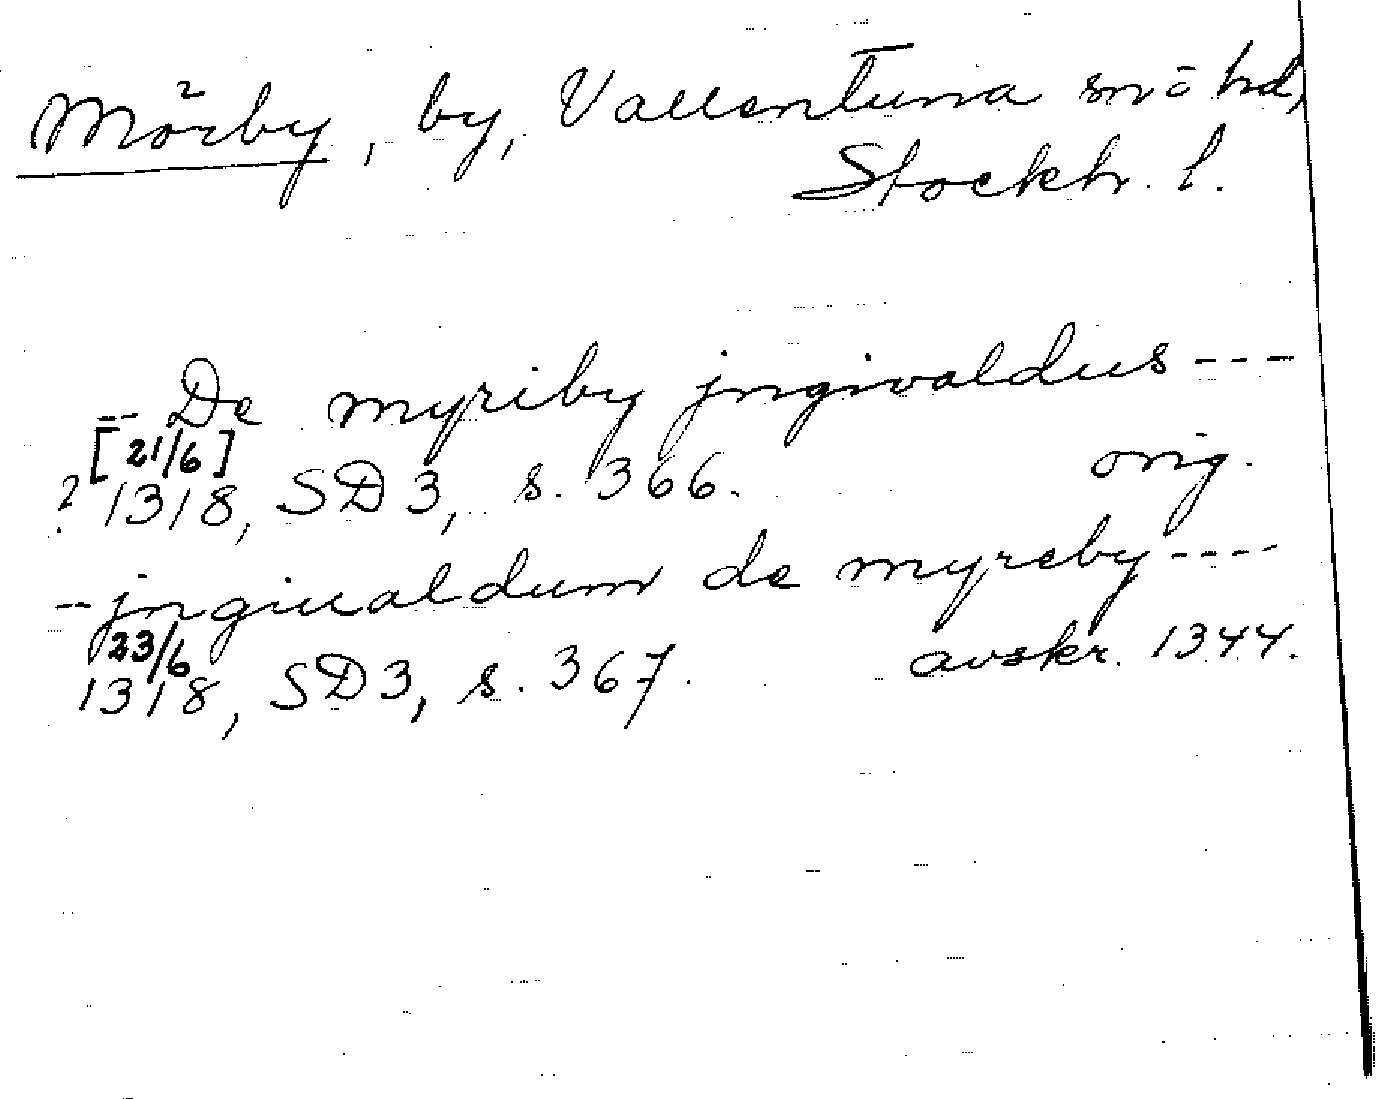 Mörby, by, Vallentuna sn o hd,
Stockh. l.
-- De myriby jngivaldus ---
[21/6]
? 1318, SD 3, s. 366. orig.
-- jngiualdum de myreby ----
23/6
1318, SD 3, s. 367. avskr. 1344.